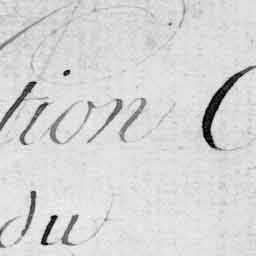 tion
du